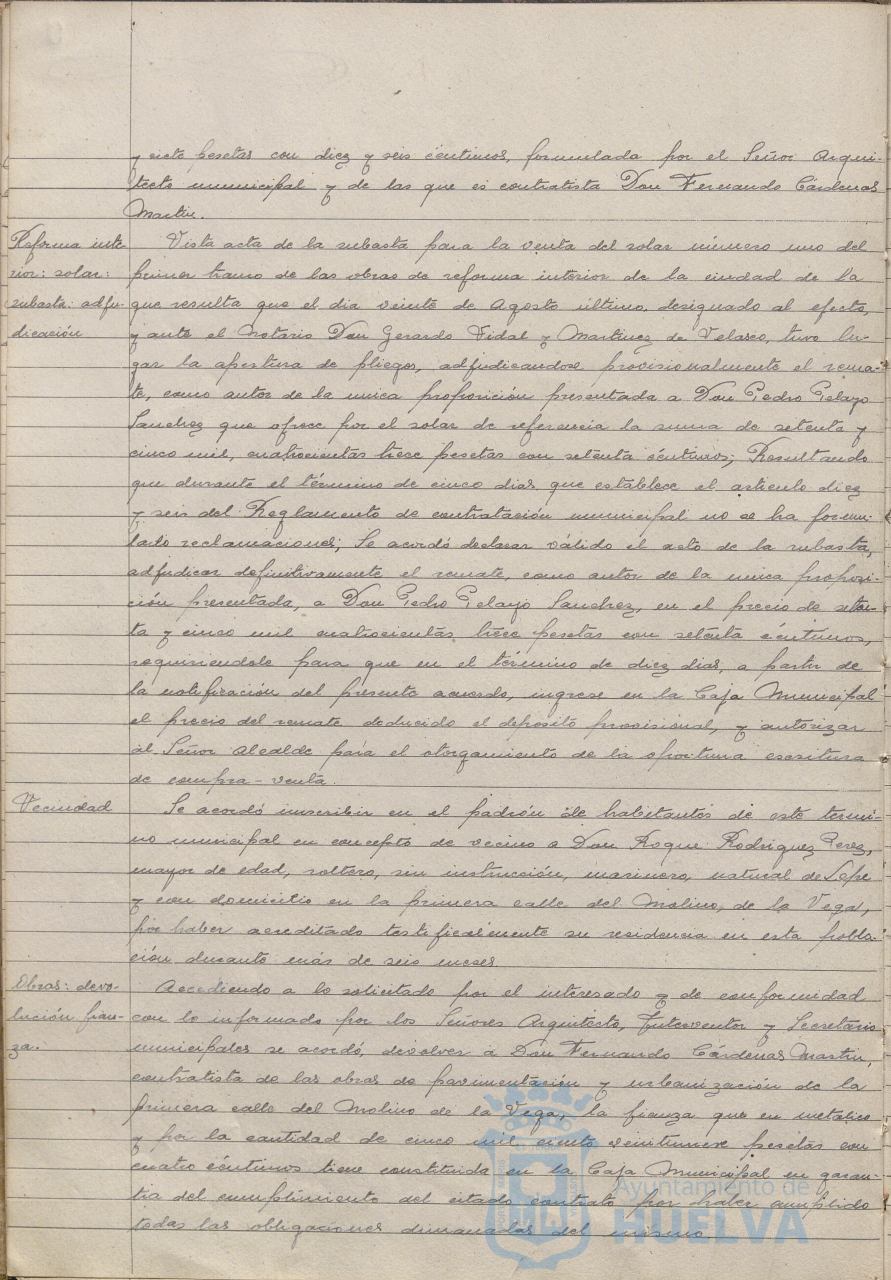 y siete pesetas con diez y seis céntimos, formulada por el Señor Arqui-
tecto municipal y de las que es contratista Don Fernando Cárdenas
Martin.
Reforma inte
rior: solar:
subasta: adju-
dicación
Vista acta de la subasta para la venta del solar número uno del
primer tramo de las obras de reforma interior de la ciudad de la
que resulta que el dia veinte de Agosto último, designado al efecto,
y ante el Notario Don Gerardo Vidal y Martinez de Velasco, tuvo lu-
gar la apertura de pliegos, adjudicandose provisionalmente el rema-
te, como autor de la unica proposición presentada a Don Pedro Pelayo
Sanchez que ofrece por el solar de referencia la suma de setenta y
cinco mil, cuatrocientas trece pesetas con setenta céntimos; Resultando
que durante el término de cinco dias que establece el articulo diez
y seis del Reglamento de contratación municipal no se ha formu-
lado reclamaciones; Se acordó declarar válido el acto de la subasta,
adjudicar definitivamente el remate, como autor de la unica proposi-
ción presentada, a Don Pedro Pelayo Sanchez, en el precio de seten-
ta y cinco mil cuatrocientas trece pesetas con setenta céntimos,
requiriendole para que en el término de diez dias, a partir de
la notificación del presente acuerdo, ingrese en la Caja Municipal
el precio del remate deducido el depósito provisional, y autorizar
al Señor Alcalde para el otorgamiento de la oportuna escritura
de compra-venta.
Vecindad
Se acordó inscribir en el padrón de habitantes de este termi-
no municipal en concepto de vecino a Don Roque Rodriguez Perez,
mayor de edad, soltero, sin instrucción, marinero, natural de Lepe
y con domicilio en la primera calle del Molino, de la Vega,
por haber acreditado testificalmente su residencia en esta pobla-
ción durante más de seis meses.
Obras: devo-
lución fian-
za.
Accediendo a lo solicitado por el interesado y de conformidad
con lo informado por los Señores Arquitecto, Interventor y Secretario
municipales se acordó, devolver a Don Fernando Cárdenas Martin,
contratista de las obras de pavimentación y urbanización de la
primera calle del Molino de la Vega, la fianza que en metalico
y por la cantidad de cinco mil, ciento veintinueve pesetas con
cuatro céntimos tiene constituida en la Caja Municipal en garan-
tia del cumplimiento del citado contrato por haber cumplido
todas las obligaciones dimanadas del mismo.
Ayuntamiento de
HUELVA